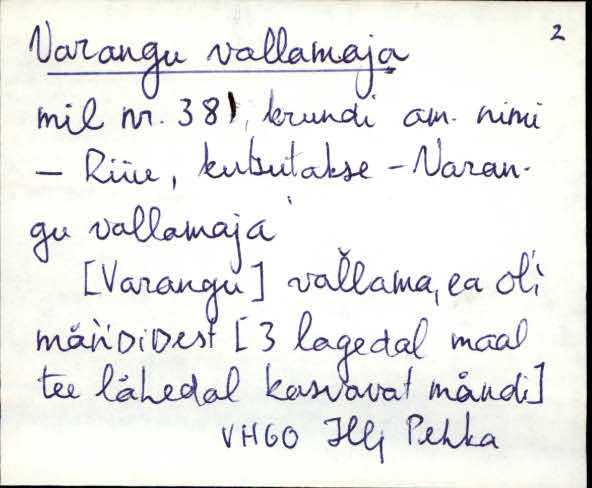 2
Varangu vallamaja
mil nr. 381, krundi am. nimi
– Riiu, kutsutakse – Varan-
gu vallamaja
[Varangu] vallama, ea oli
mäńDiDest [3 lagedal maal
tee lähedal kasvavat mändi]
VHGO Pehka